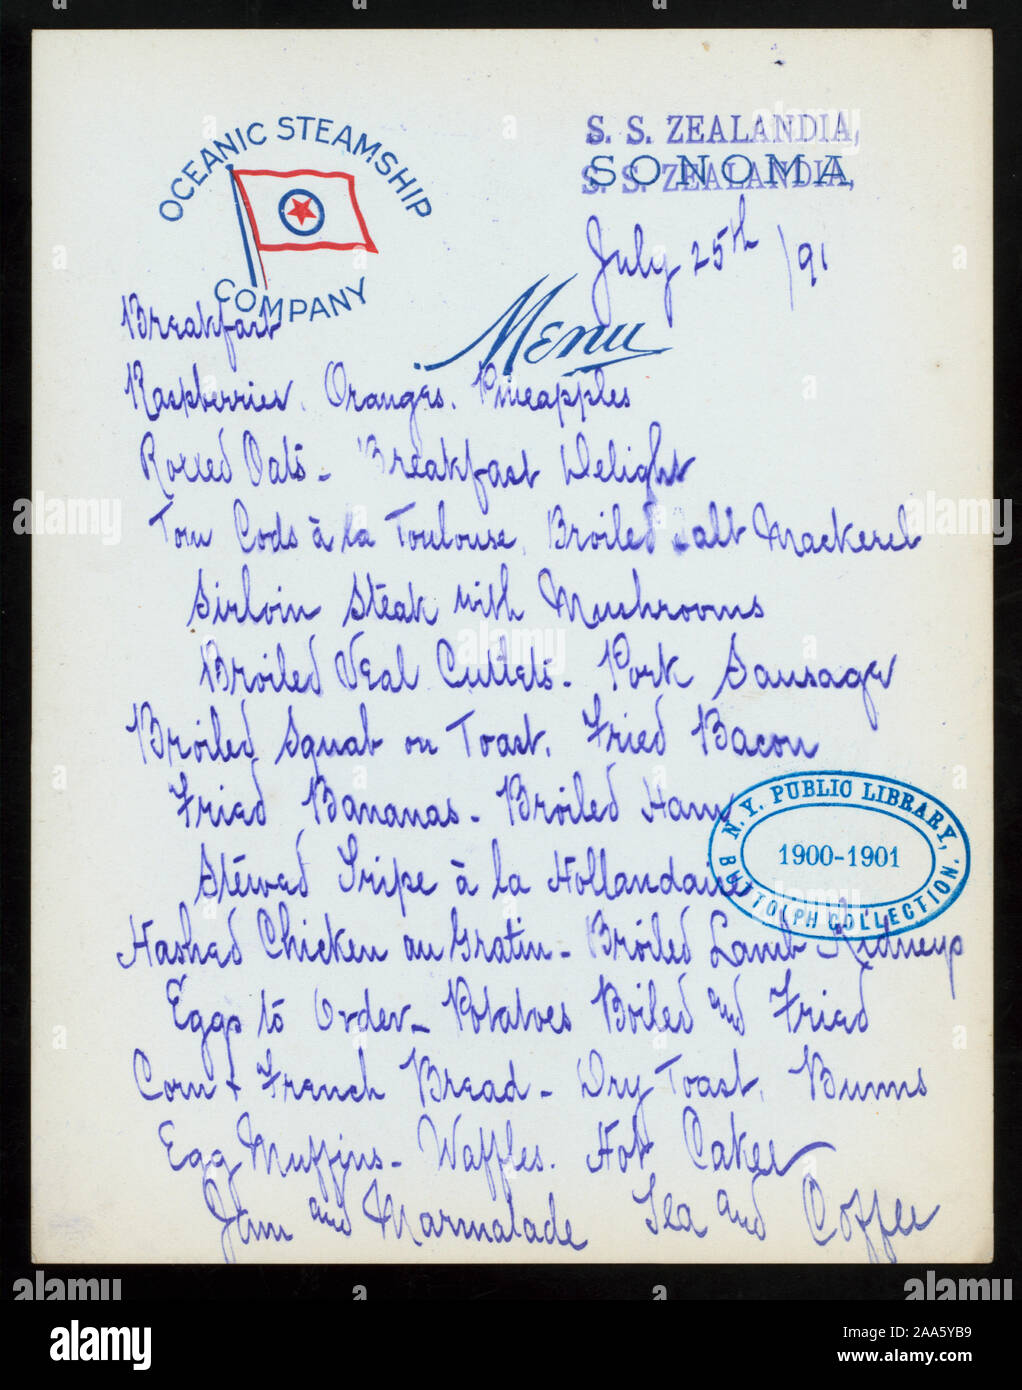 OCEANIC STEAMSHIP
COMPANY
S. S. ZEALANDIA,
SONOMA
S. S. ZEALANDIA,
July 25th /91
Menu
Breakfast
Raspberries. Oranges. Pineapples
Rolled Oats - Breakfast Delight
Tom Cods à la Toulouse, Broiled Salt Mackerel
Sirloin Steak with Mushrooms
Broiled Veal Cutlets - Pork Sausage
Broiled Squab on Toast. Fried Bacon
Fried Bananas - Broiled Ham
Stewed Tripe à la Hollandaise
Hashed Chicken au Gratin - Broiled Lamb Kidneys
Eggs to Order - Potatoes Boiled and Fried
Corn + French Bread - Dry Toast. Bunns
Egg Muffins - Waffles. Hot Cakes
Jam and Marmalade Tea and Coffee
N.Y. PUBLIC LIBRARY,
1900-1901
BUTTOLPH COLLECTION.
alamy
Image ID: 2AA5YB9
www.alamy.com